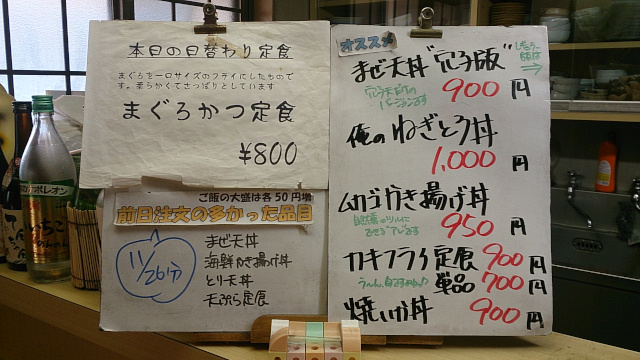 本日の日替わり定食
まぐろを一口サイズのフライにしたもので
す。柔らかくてさっぱりとしています
まぐろかつ定食
¥800
ご飯の大盛は各50円増
前日注文の多かった品目
11/26分
まぜ天丼
海鮮かき揚げ丼
とり天丼
天ぷら定食
オススメ
まぜ天丼"穴子版"
900円
俺のねぎとろ丼
1,000円
ムカゴかき揚げ丼
950円
カキフライ定食 900円
単品 700円
焼いか丼 900円
いいちこ